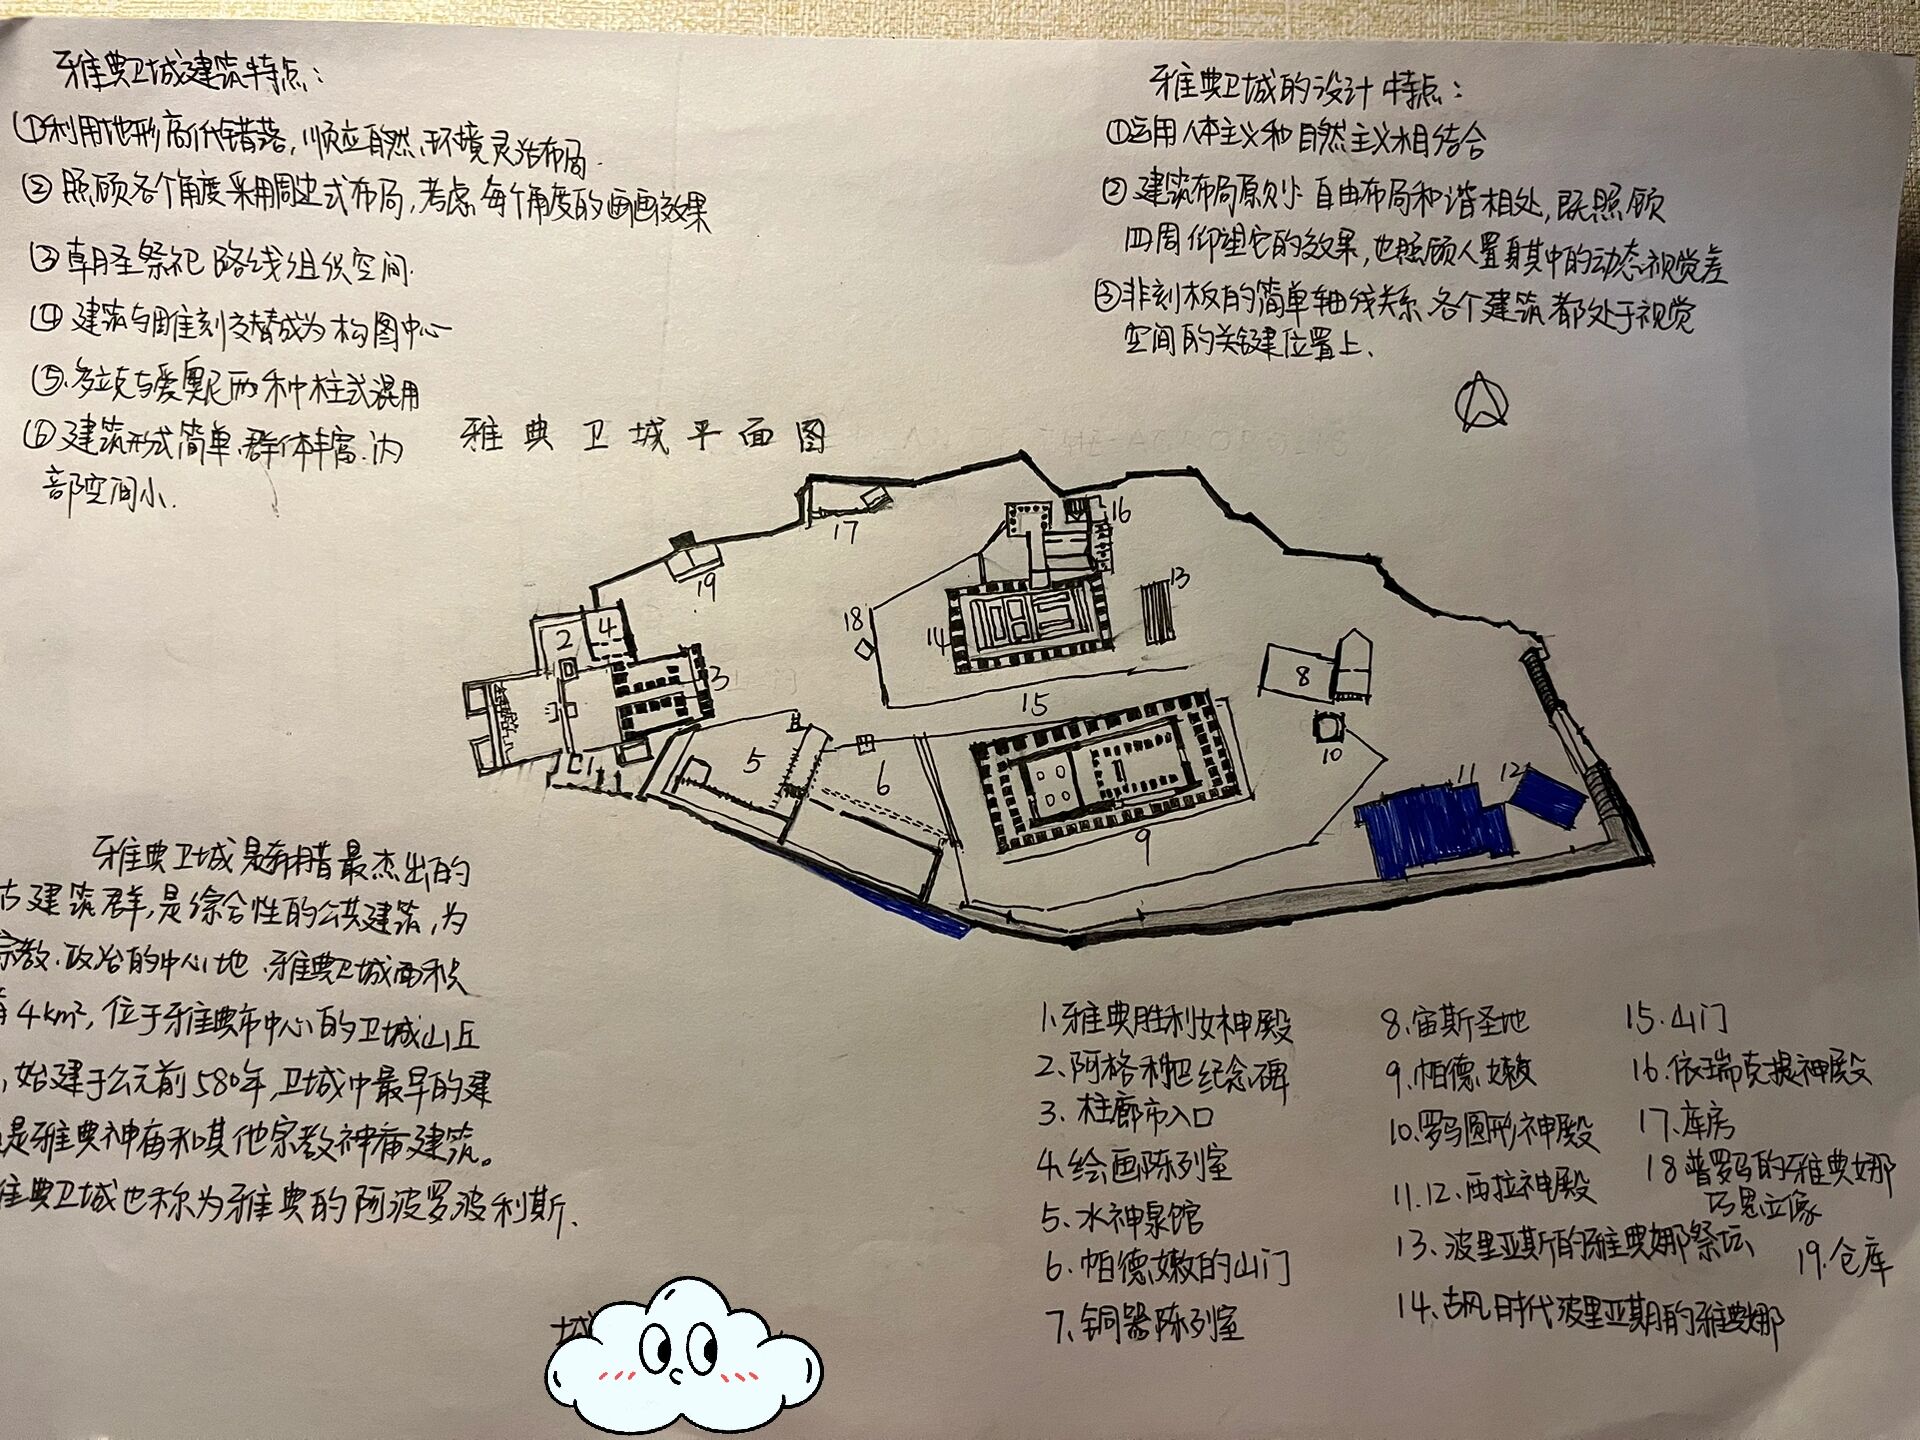 雅典卫城建筑特点：
①利用地形高低错落，顺应自然，环境灵活布局.
②照顾各个角度采用周边式布局，考虑每个角度的画画效果
③朝圣祭祀路线组织空间.
④建筑与雕刻交替成为构图中心
⑤.多立克与爱奥尼两种柱式混用
⑥建筑形式简单、群体丰富.内
部空间小.
雅典卫城的设计特点：
①运用人本主义和自然主义相结合
②建筑布局原则：自由布局和谐相处，既照顾
四周仰望它的效果，也照顾人置身其中的动态视觉差
③非刻板的简单轴线关系各个建筑都处于视觉
空间的关键位置上、
雅典卫城平面图
17
16
19
13
2
4
18
14
3
8
15
5
6
10
11
12
1
9
雅典卫城是希腊最杰出的
古建筑群，是综合性的公共建筑，为
宗教.政治的中心地.雅典卫城面积
4km²，位于雅典市中心的卫城山丘
，始建于公元前580年，卫城中最早的建
是雅典神庙和其他宗教神庙建筑。
雅典卫城也称为雅典的阿波罗波利斯、
1.雅典胜利女神殿
2.阿格利巴纪念碑
3.柱廊市入口
4.绘画陈列室
5.水神泉馆
6.帕德嫩的山门
7.铜器陈列室
8.宙斯圣地
9.帕德嫩
10.罗马圆形神殿
11.12.西拉神殿
13.波里亚斯的雅典娜祭坛
14.古风时代波里亚斯的雅典娜
15.山门
16.依瑞克提神殿
17.库房
18普罗马的雅典娜
巧思立像
19.仓库
城